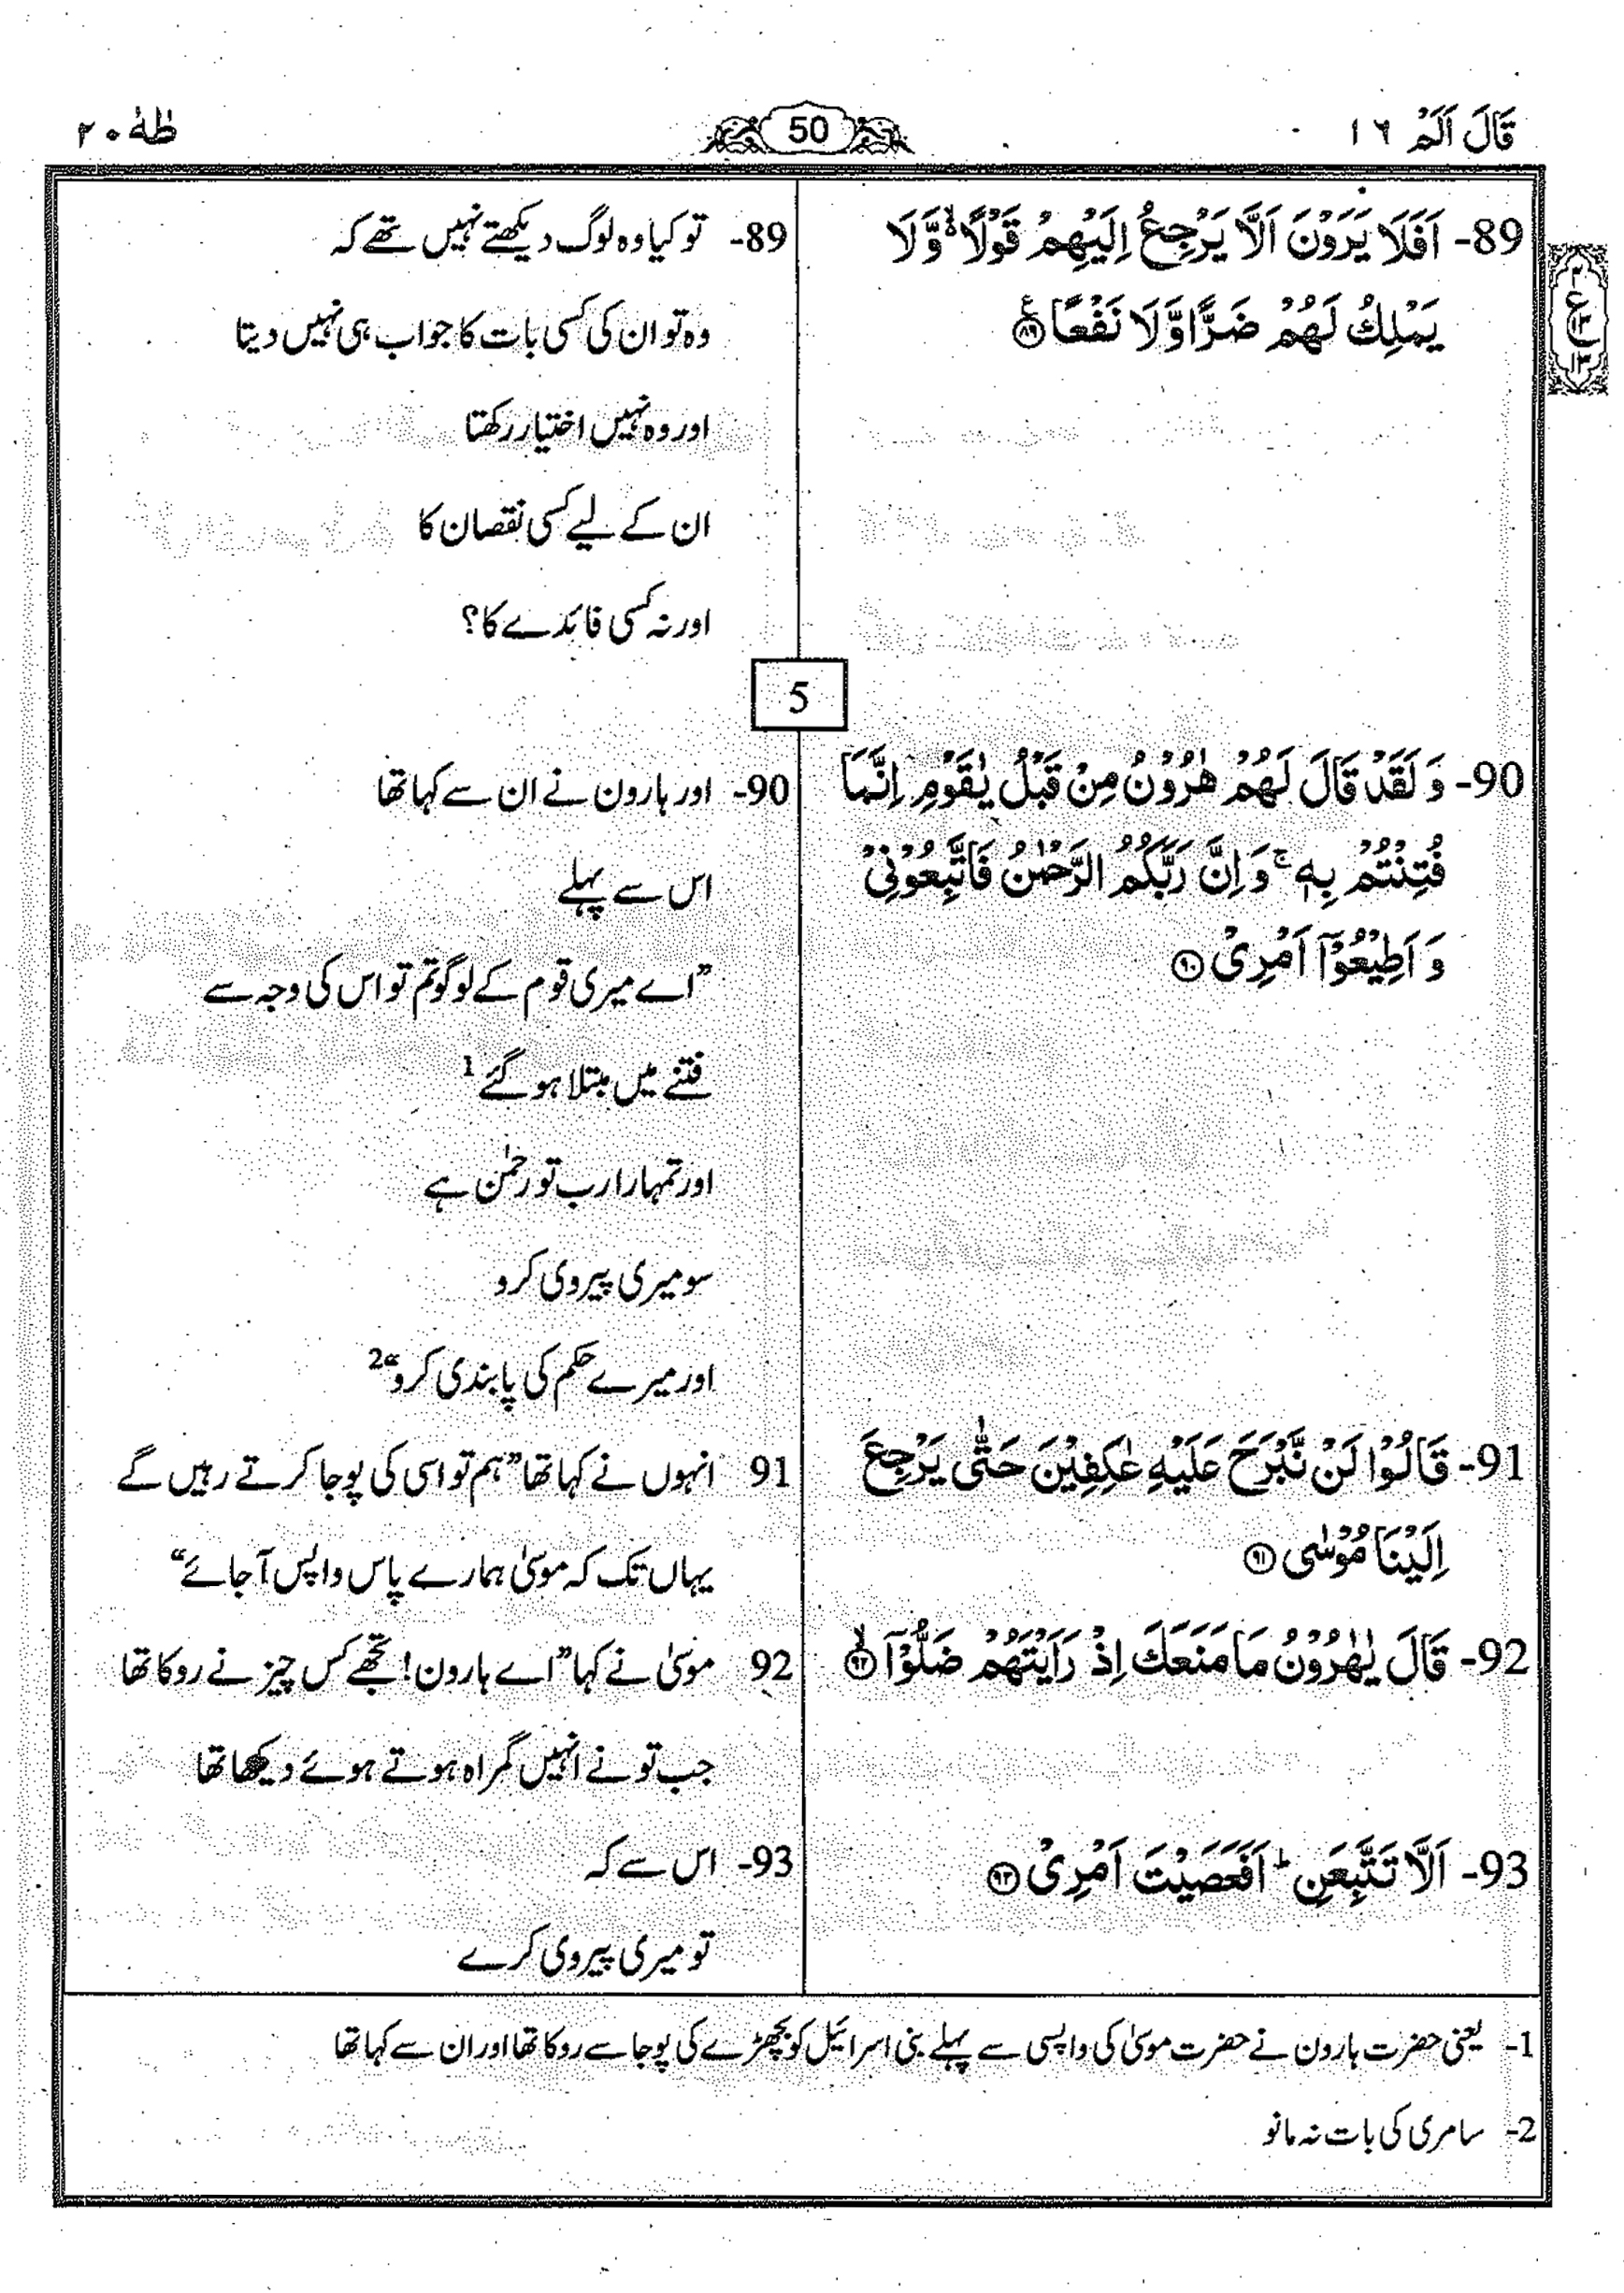 قَالَ اَلَمْ ١٦
50
طٰهٰ ٢٠
89- اَفَلَا يَرَوْنَ اَلَّا يَرْجِعُ اِلَيْهِمْ قَوْلًا ۙ وَّلَا
يَمْلِكُ لَهُمْ ضَرًّا وَّلَا نَفْعًا ۧ ۸۹
89- تو کیا وہ لوگ دیکھتے نہیں تھے کہ
وہ تو ان کی کسی بات کا جواب ہی نہیں دیتا
اور وہ نہیں اختیار رکھتا
ان کے لیے کسی نقصان کا
اور نہ کسی فائدے کا؟
5
90- وَ لَقَدْ قَالَ لَهُمْ هٰرُوْنُ مِنْ قَبْلُ يٰقَوْمِ اِنَّمَا
فُتِنْتُمْ بِهٖ ۚ وَ اِنَّ رَبَّكُمُ الرَّحْمٰنُ فَاتَّبِعُوْنِيْ
وَ اَطِيْعُوْۤا اَمْرِيْ ۹۰
90- اور ہارون نے ان سے کہا تھا
اس سے پہلے
”اے میری قوم کے لوگو تم تو اس کی وجہ سے
فتنے میں مبتلا ہو گئے 1
اور تمہارا رب تو رحمٰن ہے
سو میری پیروی کرو
اور میرے حکم کی پابندی کرو“ 2
91- قَالُوْا لَنْ نَّبْرَحَ عَلَيْهِ عٰكِفِيْنَ حَتّٰى يَرْجِعَ
اِلَيْنَا مُوْسٰى ۹۱
91 انہوں نے کہا تھا ”ہم تو اسی کی پوجا کرتے رہیں گے
یہاں تک کہ موسیٰ ہمارے پاس واپس آ جائے“
92- قَالَ يٰهٰرُوْنُ مَا مَنَعَكَ اِذْ رَاَيْتَهُمْ ضَلُّوْۤا ۙ ۹۲
92 موسیٰ نے کہا ”اے ہارون! تجھے کس چیز نے روکا تھا
جب تو نے انہیں گمراہ ہوتے ہوئے دیکھا تھا
93- اَلَّا تَتَّبِعَنِ ؕ اَفَعَصَيْتَ اَمْرِيْ ۹۳
93- اس سے کہ
تو میری پیروی کرے
1- یعنی حضرت ہارون نے حضرت موسیٰ کی واپسی سے پہلے بنی اسرائیل کو بچھڑے کی پوجا سے روکا تھا اور ان سے کہا تھا
2- سامری کی بات نہ مانو